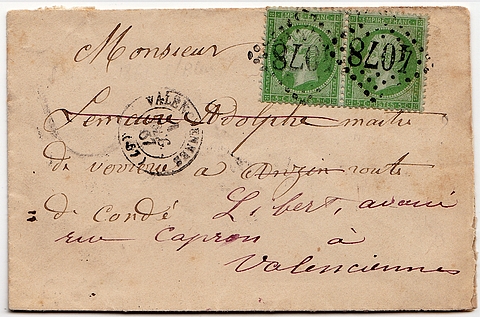 EMPIRE FRANC
4078
4078
Monsieur
Lemaire Adolphe maitre
de verrerie à Anzin route
de condé Libert, avoué
rue Capron à
Valenciennes
VALENCIENNES
67
(57)